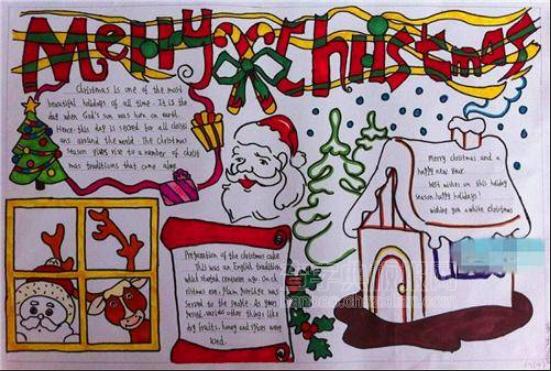 Merry Christmas
Christmas is one of the most
beautiful holidays of all time. It is the
day when God's sun was born on earth.
Hence this day is sacred for all christi
ans around the world. The Christmas
season gives rise to a number of christ
mas traditions that come along
Merry christmas and a
happy new year
best wishes on this holiday
season happy holidays!
wishing you a white christmas
Preparation of the christmas cake
This was an English tradition,
which started centuries ago. On ch
ristmas eve, Plum porridge was
served to the people. As years
passed, various other things like
dry fruits, honey and spices were
used.